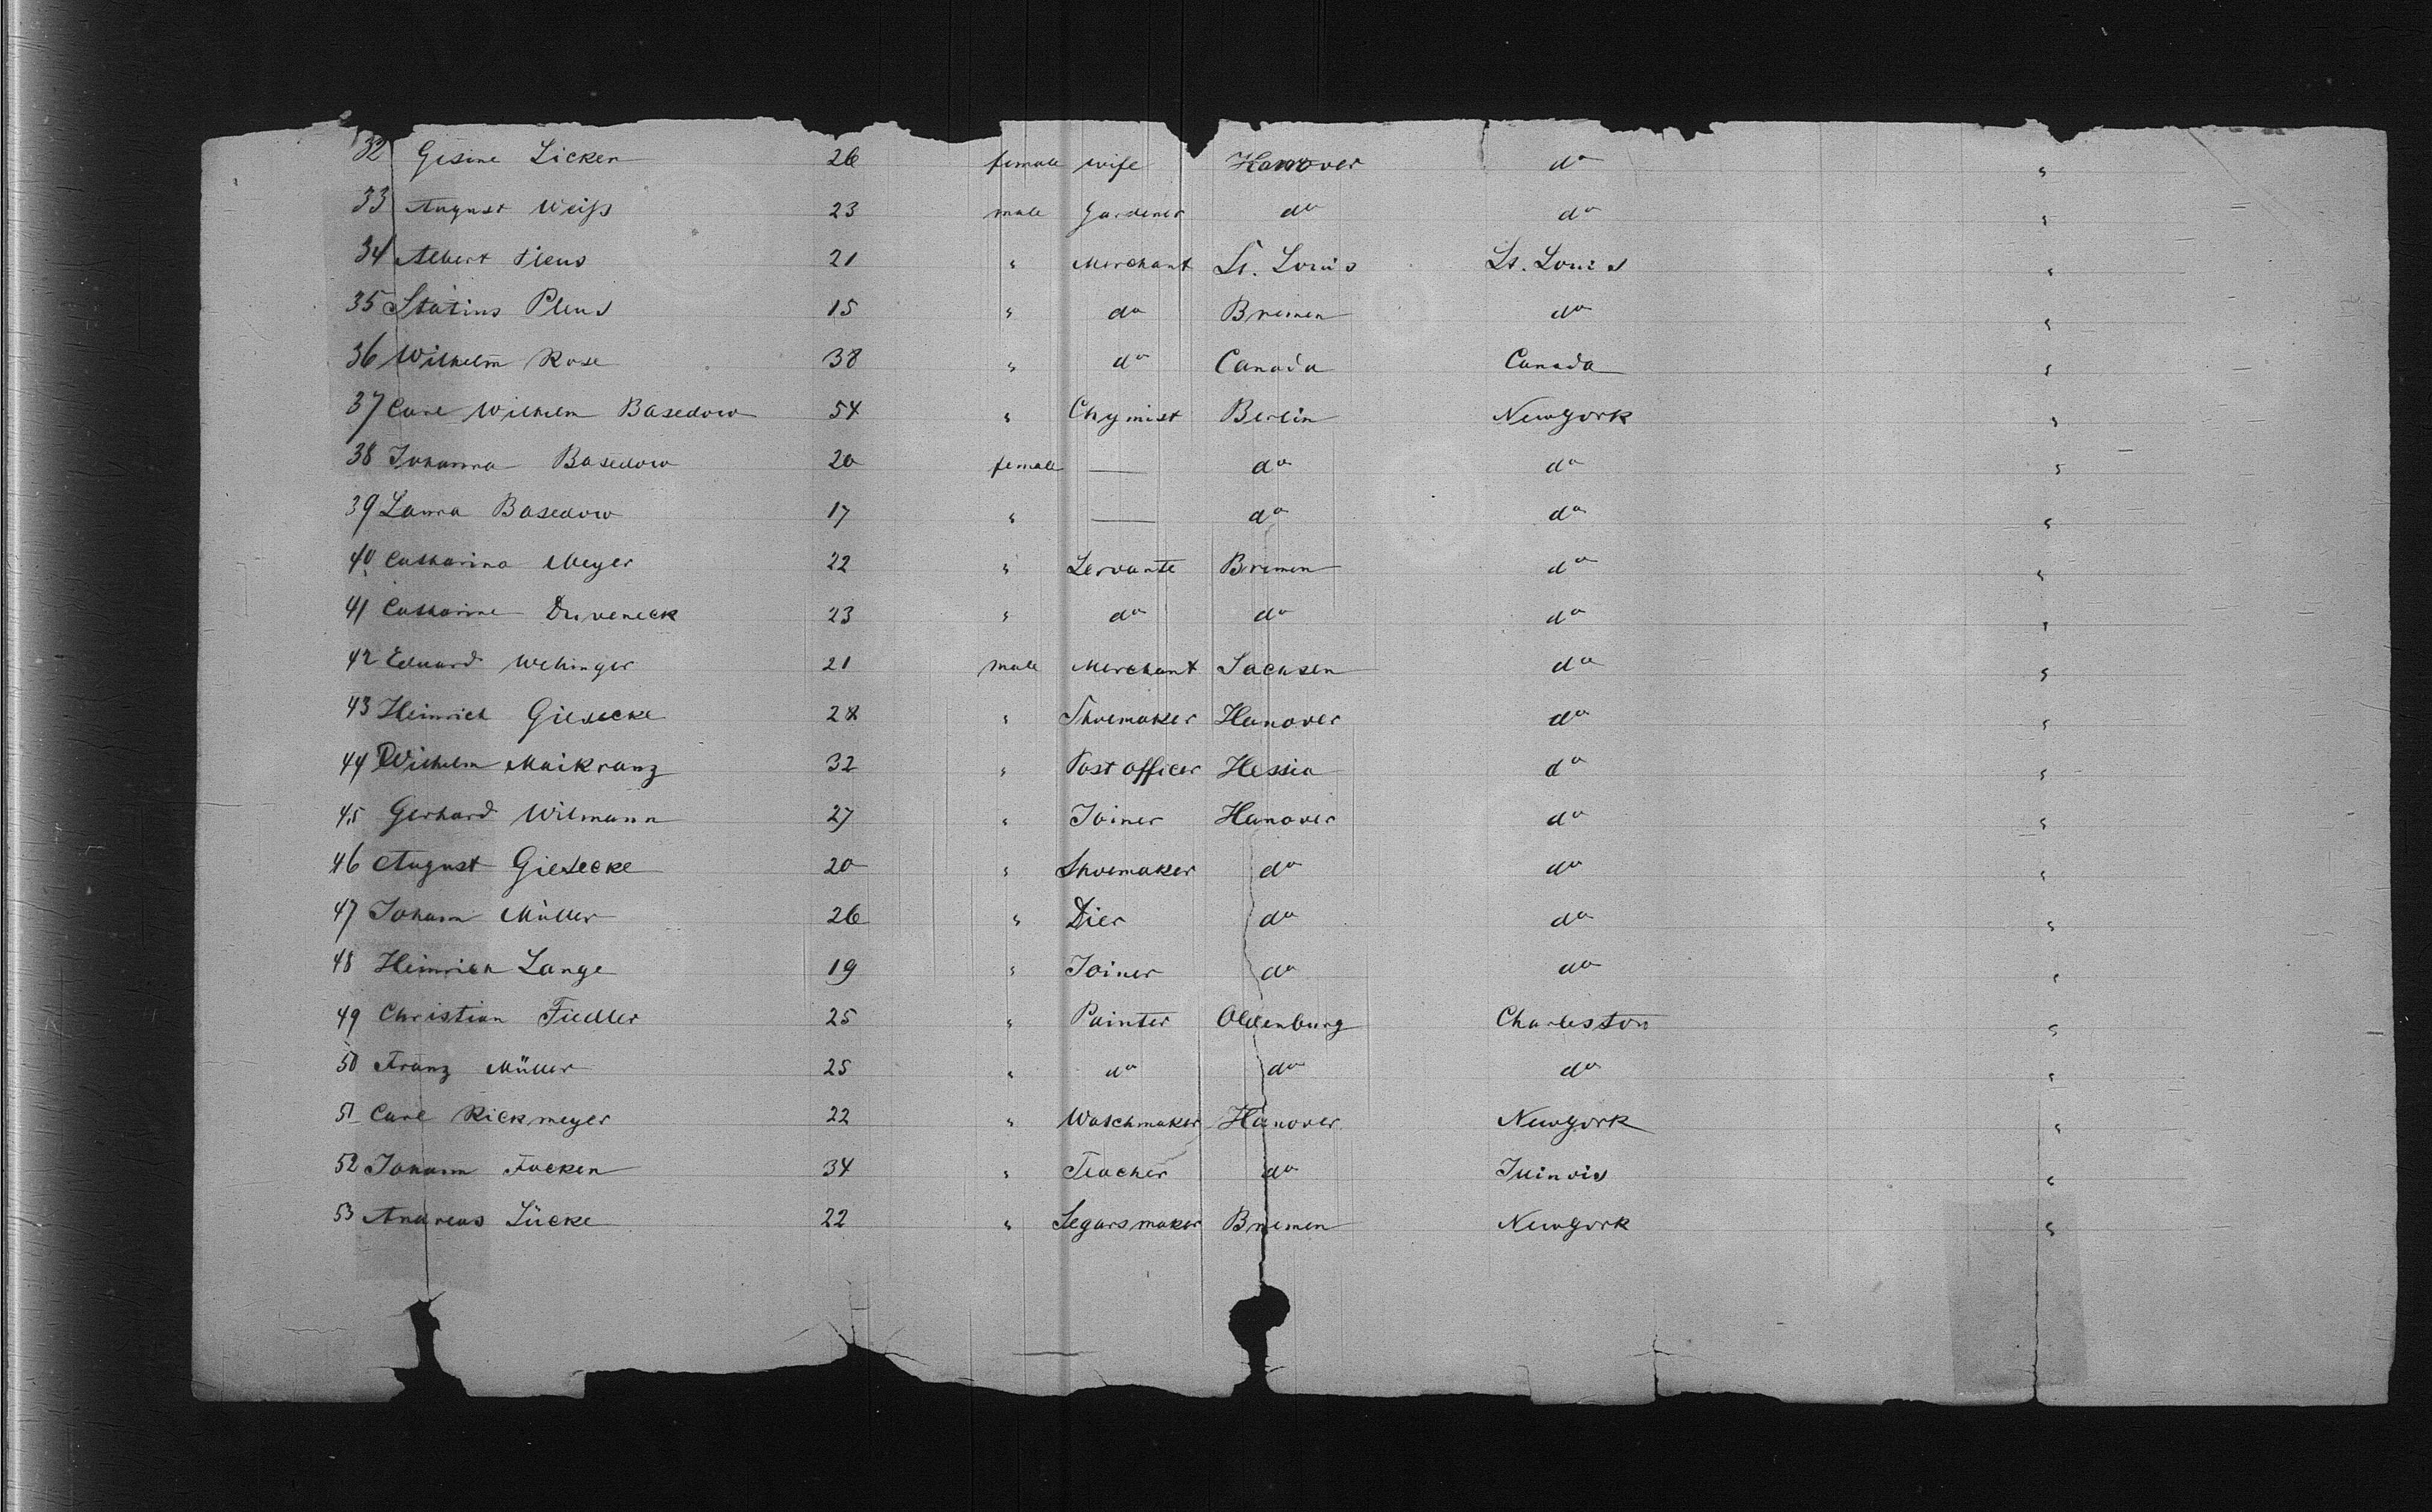 32 Gesine Licken 26 female wife Hanover do "
33 August Weiß 23 male Gardener do do "
34 Albert Pleus 21 " Merchant St. Louis St. Louis "
35 Statius Pleus 15 " do Bremen do "
36 Wilhelm Rose 38 " do Canada Canada "
37 Carl Wilhelm Basedow 54 " Chymist Berlin Newyork "
38 Johanna Basedow 20 female — do do "
39 Laura Basedow 17 " — do do "
40 Catharina Meyer 22 " Servante Bremen do "
41 Catharine Duveneck 23 " do do do "
42 Eduard Wehinger 21 male Merchant Sachsen do "
43 Heinrich Giesecke 28 " Shoemaker Hanover do "
44 Wilhelm Maikranz 32 " Post officer Hessia do "
45 Gerhard Wilmann 27 " Joiner Hanover do "
46 August Giesecke 20 " Shoemaker do do "
47 Johann Müller 26 " Dier do do "
48 Heinrich Lange 19 " Joiner do do "
49 Christian Fiedler 25 " Painter Oldenburg Charleston "
50 Franz Müller 25 " do do do "
51 Carl Rickmeyer 22 " Waschmaker Hanover Newyork "
52 Johann Focken 34 " Teacher do Illinois "
53 Andreas Lücke 22 " Segarsmaker Bremen Newyork "